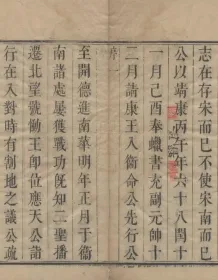 志在存宋而已不使宋南而已
公以靖康丙午年六十八閏十
一月己酉奉蠟書充副元帥十
二月請康王入衞命公先行公
序
至開德進南華明年正月于衞
南諸處屢獲戰功旣知二聖播
遷北望號慟王即位應天公詣
行在入對時有割地之議公疏